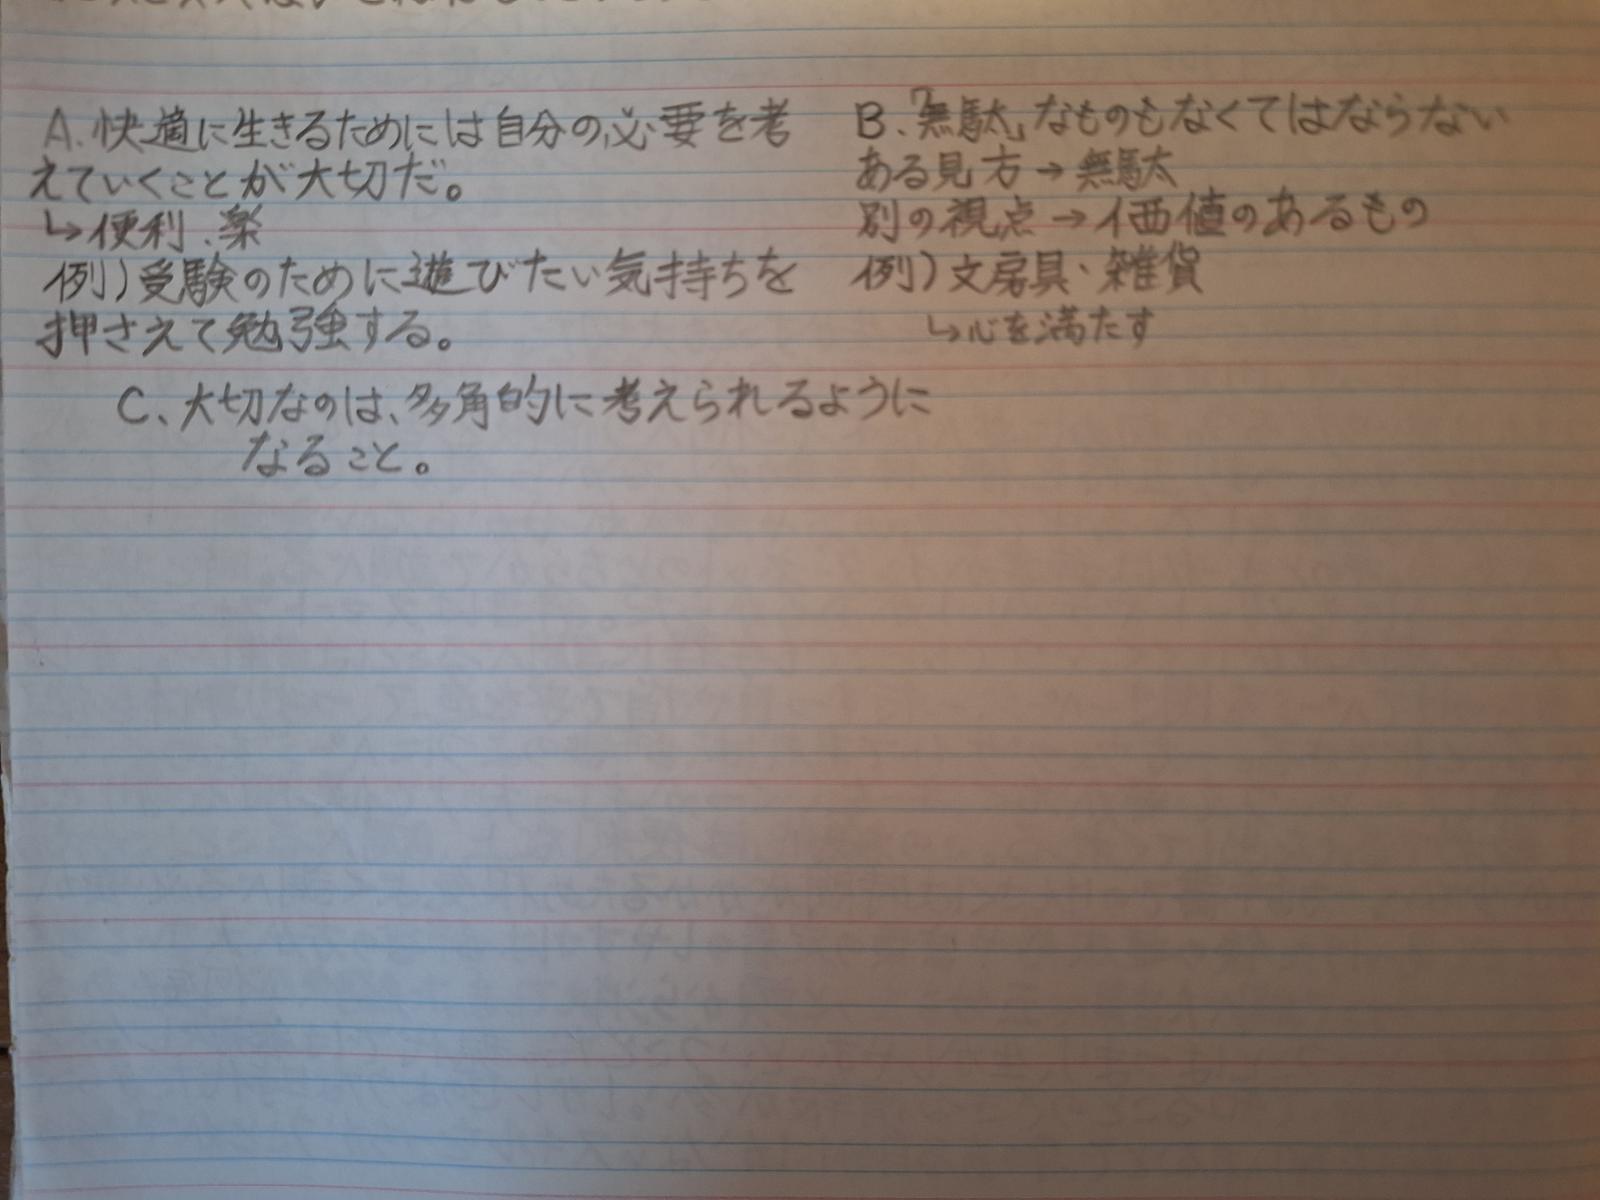 A.快適に生きるためには自分の必要を考
えていくことが大切だ。
↳便利.楽
例)受験のために遊びたい気持ちを
押さえて勉強する。
B.「無駄」なものもなくてはならない
ある見方→無駄
別の視点→価値のあるもの
例)文房具・雑貨
↳心を満たす
C、大切なのは、多角的に考えられるように
なること。